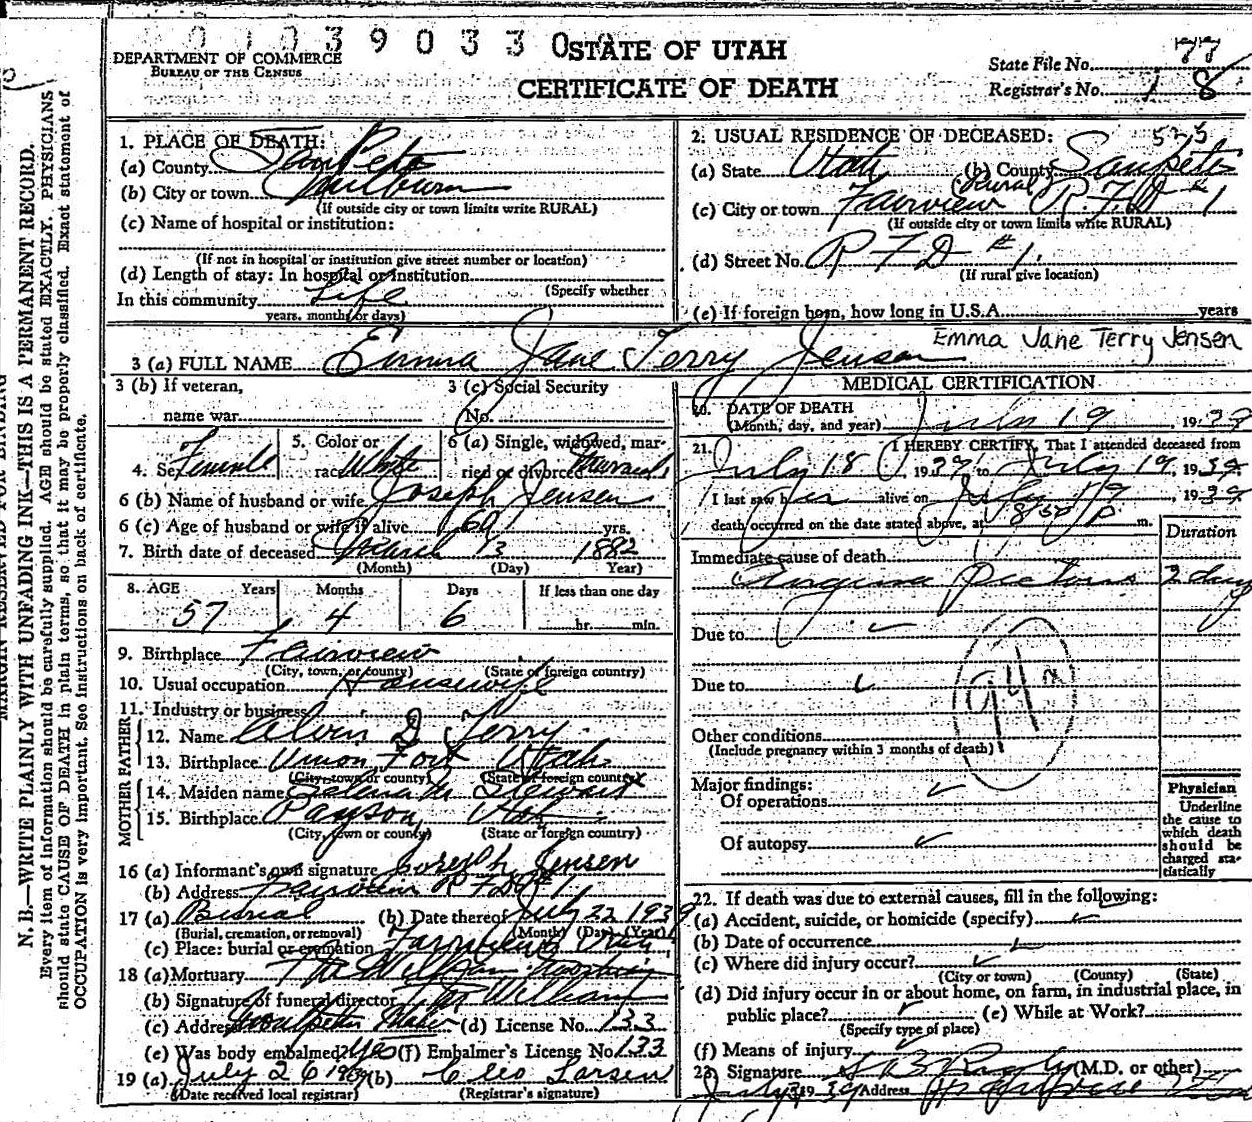 0 0 0 3 9 0 3 3 0
STATE OF UTAH
CERTIFICATE OF DEATH
DEPARTMENT OF COMMERCE
BUREAU OF THE CENSUS
State File No. 77
Registrar's No. 18
N. B.—WRITE PLAINLY WITH UNFADING INK—THIS IS A PERMANENT RECORD.
Every item of information should be carefully supplied. AGE should be stated EXACTLY. PHYSICIANS
should state CAUSE OF DEATH in plain terms, so that it may be properly classified. Exact statement of
OCCUPATION is very important. See instructions on back of certificate.
1. PLACE OF DEATH:
(a) County SanPete
(b) City or town Milburn
(If outside city or town limits write RURAL)
(c) Name of hospital or institution:
(If not in hospital or institution give street number or location)
(d) Length of stay: In hospital or institution
(Specify whether
In this community Life
years, months or days)
2. USUAL RESIDENCE OF DECEASED: 525
(a) State Utah (b) County Sanpete
(c) City or town Fairview (Rural) R.F.D #1
(If outside city or town limits write RURAL)
(d) Street No. R F D #1.
(If rural give location)
(e) If foreign born, how long in U.S.A. years
3 (a) FULL NAME Emma Jane Terry Jensen Emma Jane Terry Jensen
3 (b) If veteran,
name war
3 (c) Social Security
No.
4. Sex Female
5. Color or
race White
6 (a) Single, widowed, mar-
ried or divorced Married
6 (b) Name of husband or wife Joseph Jensen
6 (c) Age of husband or wife if alive 69 yrs.
7. Birth date of deceased March 13 1882
(Month) (Day) Year)
8. AGE Years Months Days If less than one day
57 4 6 hr. min.
9. Birthplace Fairview
(City, town, or county) (State or foreign country)
10. Usual occupation Housewife
11. Industry or business
FATHER
12. Name Alvin D Terry
13. Birthplace Union Fort Utah
(City, town or county) (State or foreign country)
MOTHER
14. Maiden name Stewart
15. Birthplace Payson, Utah
(City, town or county) (State or foreign country)
16 (a) Informant's own signature Joseph Jensen
(b) Address Fairview R F D #1
17 (a) Burial (b) Date thereof July 22 1939
(Burial, cremation, or removal) (Month) (Day) (Year)
(c) Place: burial or cremation Fairview Utah
18 (a) Mortuary
(b) Signature of funeral director
(c) Address (d) License No. 133
(e) Was body embalmed? Yes (f) Embalmer's License No. 133
19 (a) July 26 1939 (b) Cleo Larsen
(Date received local registrar) (Registrar's signature)
MEDICAL CERTIFICATION
20. DATE OF DEATH
(Month, day, and year) July 19, 1939
21. I HEREBY CERTIFY, That I attended deceased from
July 18, 1939, to July 19, 1939
I last saw her alive on July 19, 1939
death occurred on the date stated above, at 8:50 p m.
Duration
Immediate cause of death
Angina Pectoris 2 days
Due to
Due to
94
Other conditions
(Include pregnancy within 3 months of death)
Major findings:
Of operations
Of autopsy
Physician
Underline
the cause to
which death
should be
charged sta-
tistically
22. If death was due to external causes, fill in the following:
(a) Accident, suicide, or homicide (specify)
(b) Date of occurrence
(c) Where did injury occur?
(City or town) (County) (State)
(d) Did injury occur in or about home, on farm, in industrial place, in
public place? (e) While at Work?
(Specify type of place)
(f) Means of injury
23. Signature (M.D. or other)
Address